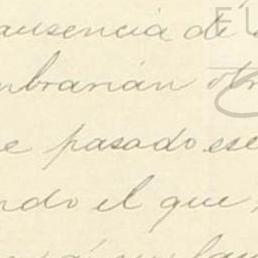 ausencia de
mbrarían otr
e pasado ese
ndo el que